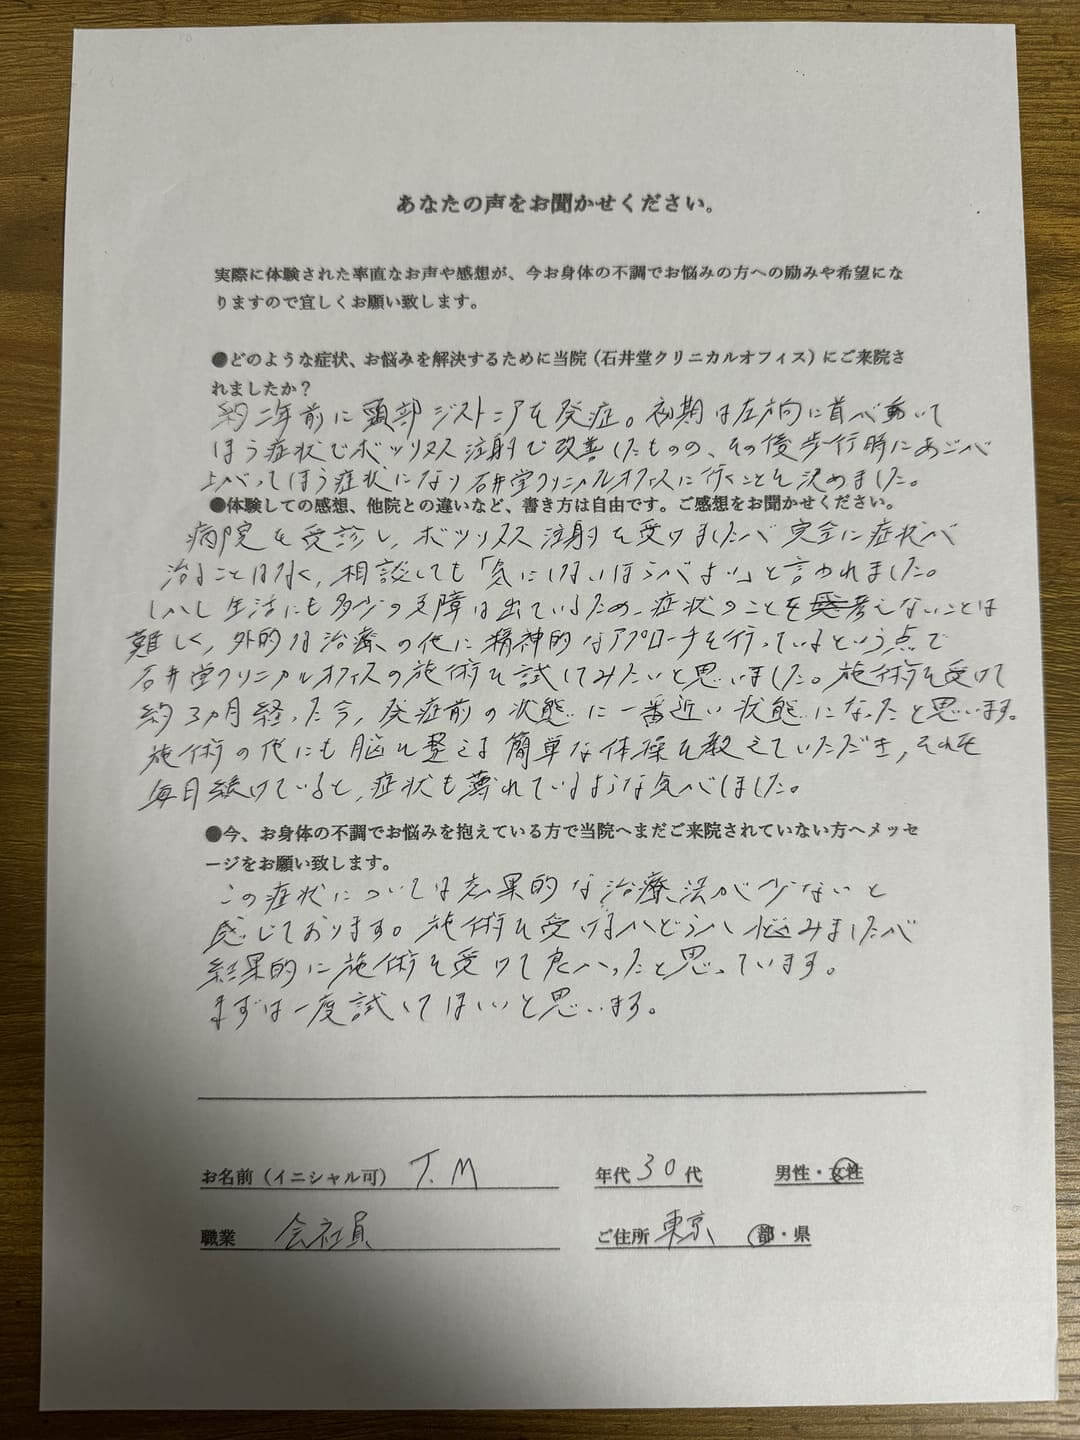 あなたの声をお聞かせください。
実際に体験された率直なお声や感想が、今お身体の不調でお悩みの方への励みや希望にな
りますので宜しくお願い致します。
●どのような症状、お悩みを解決するために当院（石井堂クリニカルオフィス）にご来院さ
れましたか？
約二年前に頸部ジストニアを発症。初期は左方向に首が動いて
しまう症状でボツリヌス注射で改善したものの、その後歩行時にあごが
上がってしまう症状になり石井堂クリニカルオフィスに行くことを決めました。
●体験しての感想、他院との違いなど、書き方は自由です。ご感想をお聞かせください。
病院を受診し、ボツリヌス注射を受けましたが完全に症状が
治ることはなく、相談しても「気にしないほうがよい」と言われました。
しかし生活にも多少の支障は出ているため、症状のことを考えないことは
難しく、外的な治療の他に精神的なアプローチを行っているという点で
石井堂クリニカルオフィスの施術を試してみたいと思いました。施術を受けて
約3ヵ月経った今、発症前の状態に一番近い状態になったと思います。
施術の他にも脳を整える簡単な体操を教えていただき、それを
毎日続けていると、症状も薄れているような気がしました。
●今、お身体の不調でお悩みを抱えている方で当院へまだご来院されていない方へメッセ
ージをお願い致します。
この症状については効果的な治療法が少ないと
感じております。施術を受けるかどうか悩みましたが
結果的に施術を受けて良かったと思っています。
まずは一度試してほしいと思います。
お名前（イニシャル可） T.M 年代 30代 男性・女性
職業 会社員 ご住所 東京 都・県